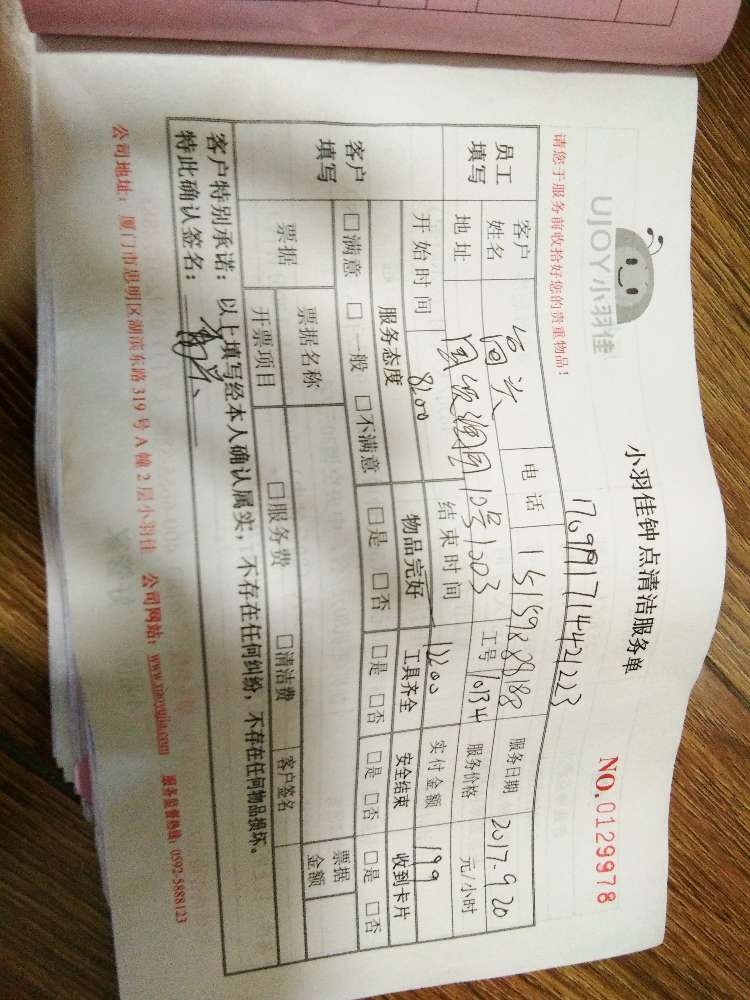 UJOY小羽佳
小羽佳钟点清洁服务单
NO.0129978
请您于服务前收拾好您的贵重物品！
176991714421223
员工填写 客户姓名 电话 15159828188 服务日期 2017.9.20
地址 10号1203 工号 10134 服务价格 元/小时
开始时间 8:00 结束时间 12:00 实付金额 199
客户填写 服务态度 物品完好 工具齐全 安全结束 收到卡片
□满意 □一般 □不满意 □是 □否 □是 □否 □是 □否 □是 □否
票据 票据名称 □服务费 □清洁费 客户签名 票据金额
开票项目
客户特别承诺：以上填写经本人确认属实，不存在任何纠纷，不存在任何物品损坏。
特此确认签名：
公司地址：厦门市思明区湖滨东路319号A幢2层小羽佳 公司网站：www.xiaoyujia.com 服务监督热线：0592-5888123